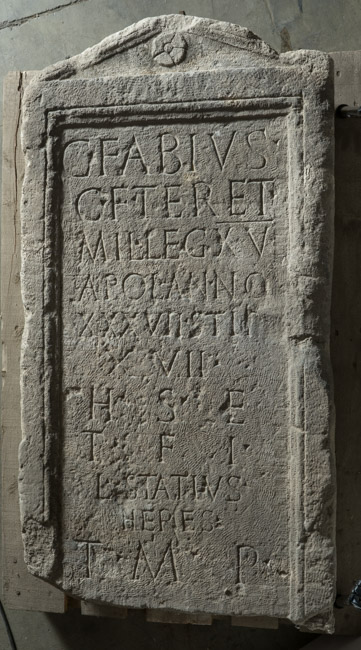 C·FABIVS
C·F·TERET
MIL·LEG·XV
APOLA·INO
XXXVII·STII
X VII
H S E
T F I
L·STATIVS
HERES
T M P